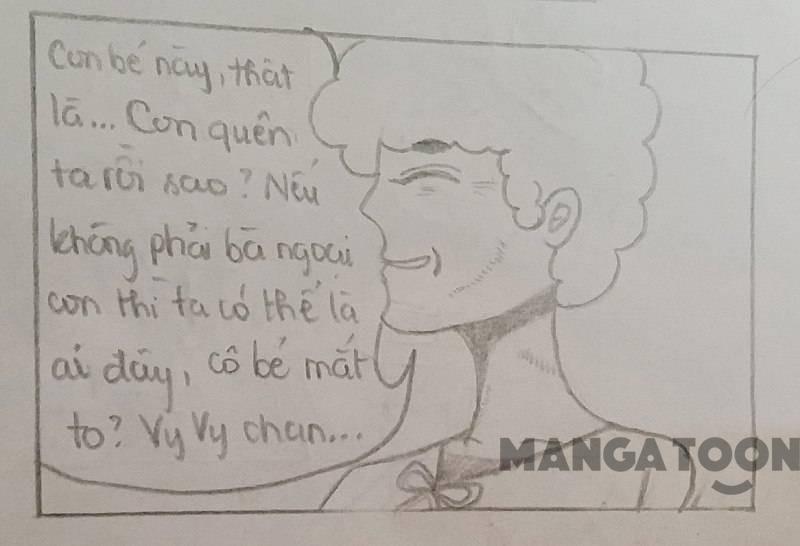 Con bé này, thật
là... Con quên
ta rồi sao? Nếu
không phải bà ngoại
con thì ta có thể là
ai đây, cô bé mắt
to? Vy Vy chan...
MANGATOON